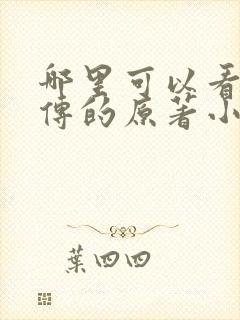 哪里可以看
傅的原著小
葉四四